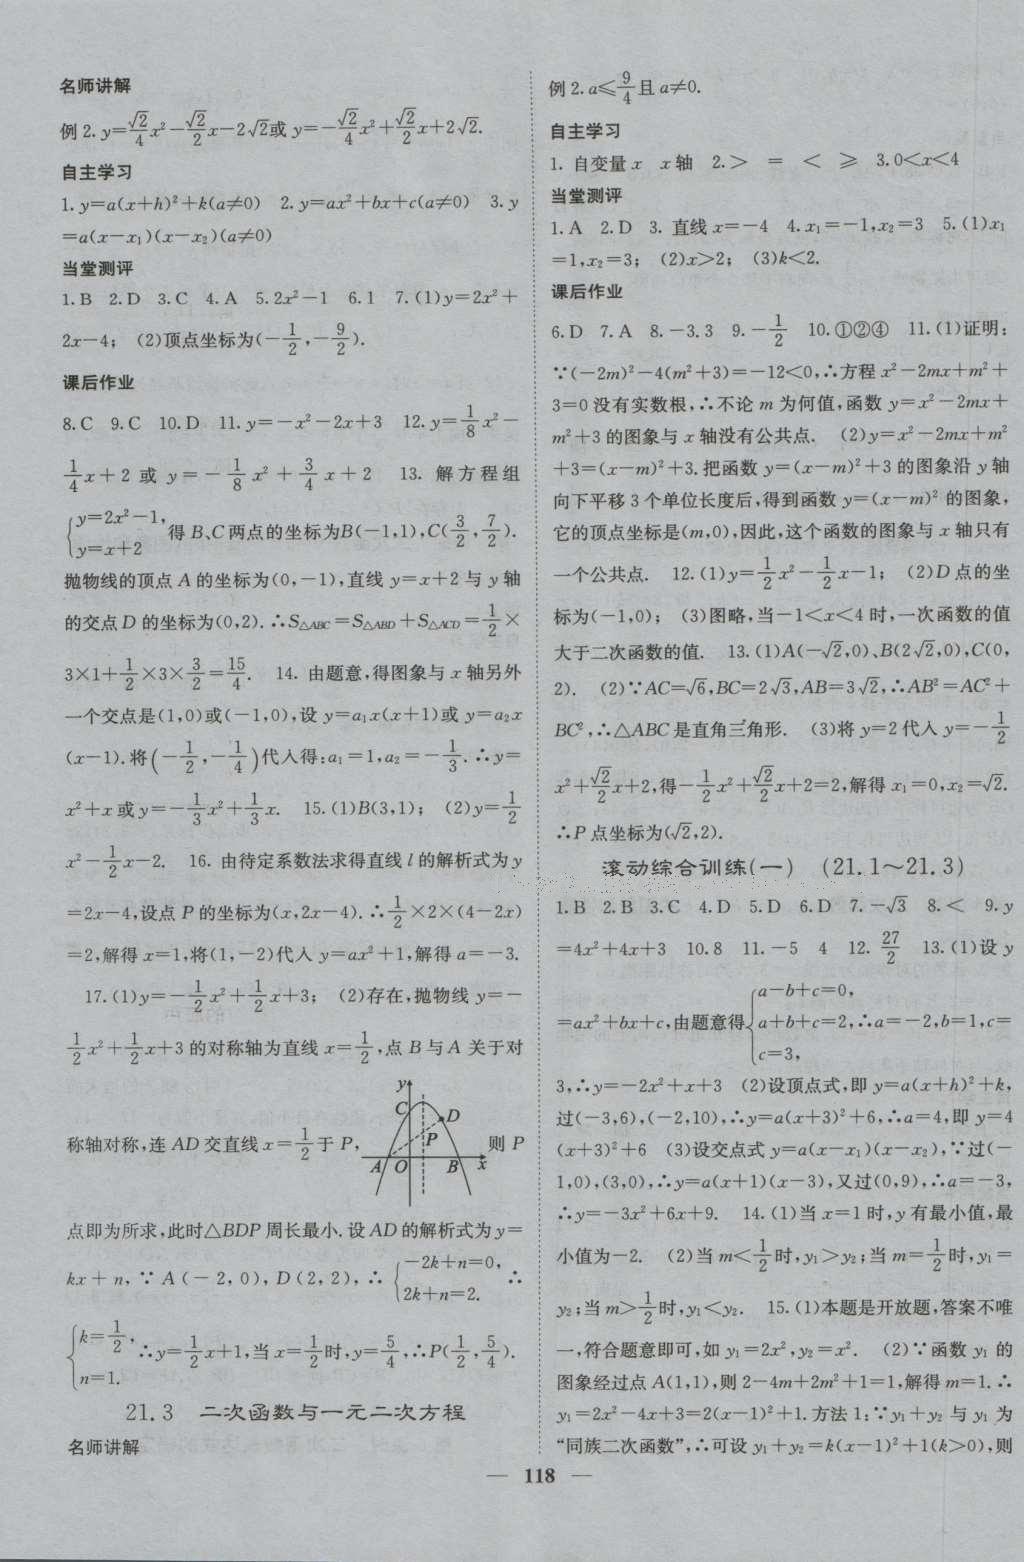 名师讲解
例2. y=√2/4x²-√2/2x-2√2或 y=-√2/4x²+√2/2x+2√2.
自主学习
1. y=a(x+h)²+k(a≠0) 2. y=ax²+bx+c(a≠0) 3. y
=a(x-x₁)(x-x₂)(a≠0)
当堂测评
1. B 2. D 3. C 4. A 5. 2x²-1 6. 1 7. (1)y=2x²+
2x-4; (2)顶点坐标为(-1/2,-9/2).
课后作业
8. C 9. C 10. D 11. y=-x²-2x+3 12. y=1/8x²-
1/4x+2 或 y=-1/8x²+3/4x+2 13. 解方程组
{y=2x²-1, y=x+2 得B、C两点的坐标为B(-1,1),C(3/2,7/2).
抛物线的顶点 A 的坐标为(0,-1),直线 y=x+2 与 y 轴
的交点 D 的坐标为(0,2). ∴S△ABC=S△ABD+S△ACD=1/2×
3×1+1/2×3×3/2=15/4. 14. 由题意,得图象与 x 轴另外
一个交点是(1,0)或(-1,0),设 y=a₁x(x+1)或 y=a₂x
(x-1).将(-1/2,-1/4)代入得:a₁=1,a₂=-1/3. ∴y=
x²+x 或 y=-1/3x²+1/3x. 15. (1)B(3,1); (2)y=1/2
x²-1/2x-2. 16. 由待定系数法求得直线 l 的解析式为 y
=2x-4,设点 P 的坐标为(x,2x-4). ∴1/2×2×(4-2x)
=2,解得 x=1,将(1,-2)代入 y=ax²+1,解得 a=-3.
17. (1)y=-1/2x²+1/2x+3; (2)存在,抛物线 y=-
1/2x²+1/2x+3 的对称轴为直线 x=1/2,点 B 与 A 关于对
称轴对称,连 AD 交直线 x=1/2于 P, y C D P A O B x 则 P
点即为所求,此时△BDP 周长最小. 设 AD 的解析式为 y=
kx+n, ∵A(-2,0),D(2,2), ∴{-2k+n=0, 2k+n=2. ∴
{k=1/2, n=1. ∴y=1/2x+1,当 x=1/2时,y=5/4,∴P(1/2,5/4).
21.3 二次函数与一元二次方程
名师讲解
例2. a≤9/4且 a≠0.
自主学习
1. 自变量 x x 轴 2. > = < ≥ 3. 0<x<4
当堂测评
1. A 2. D 3. 直线 x=-4 4. x₁=-1,x₂=3 5. (1)x₁
=1,x₂=3; (2)x>2; (3)k<2.
课后作业
6. D 7. A 8. -3.3 9. -1/2 10. ①②④ 11. (1)证明:
∵(-2m)²-4(m²+3)=-12<0,∴方程 x²-2mx+m²+
3=0 没有实数根,∴不论 m 为何值,函数 y=x²-2mx+
m²+3 的图象与 x 轴没有公共点. (2)y=x²-2mx+m²
+3=(x-m)²+3. 把函数 y=(x-m)²+3 的图象沿 y 轴
向下平移 3 个单位长度后,得到函数 y=(x-m)² 的图象,
它的顶点坐标是(m,0),因此,这个函数的图象与 x 轴只有
一个公共点. 12. (1)y=1/2x²-1/2x-1; (2)D 点的坐
标为(-1,0); (3)图略,当-1<x<4 时,一次函数的值
大于二次函数的值. 13. (1)A(-√2,0)、B(2√2,0),C(0,
2). (2)∵AC=√6,BC=2√3,AB=3√2,∴AB²=AC²+
BC²,∴△ABC 是直角三角形. (3)将 y=2 代入 y=-1/2
x²+√2/2x+2,得-1/2x²+√2/2x+2=2,解得 x₁=0,x₂=√2.
∴P 点坐标为(√2,2).
滚动综合训练(一) (21.1～21.3)
1. B 2. B 3. C 4. D 5. D 6. D 7. -√3 8. < 9. y
=4x²+4x+3 10. 8 11. -5 4 12. 27/2 13. (1)设 y
=ax²+bx+c,由题意得{a-b+c=0, a+b+c=2, c=3, ∴a=-2,b=1,c=
3,∴y=-2x²+x+3 (2)设顶点式,即 y=a(x+h)²+k,
过(-3,6),(-2,10),∴y=a(x+3)²+6,∴a=4,即 y=4
(x+3)²+6 (3)设交点式 y=a(x-x₁)(x-x₂),∵过(-
1,0),(3,0),∴y=a(x+1)(x-3),又过(0,9),∴a=-3,
∴y=-3x²+6x+9. 14. (1)当 x=1 时,y 有最小值,最
小值为-2. (2)当 m<1/2时,y₁>y₂;当 m=1/2时,y₁=
y₂;当 m>1/2时,y₁<y₂. 15. (1)本题是开放题,答案不唯
一,符合题意即可,如 y₁=2x²,y₂=x². (2)∵函数 y₁ 的
图象经过点 A(1,1),则 2-4m+2m²+1=1,解得 m=1. ∴
y₁=2x²-4x+3=2(x-1)²+1. 方法 1:∵y₁+y₂ 与 y₁ 为
“同族二次函数”,∴可设 y₁+y₂=k(x-1)²+1(k>0),则
— 118 —